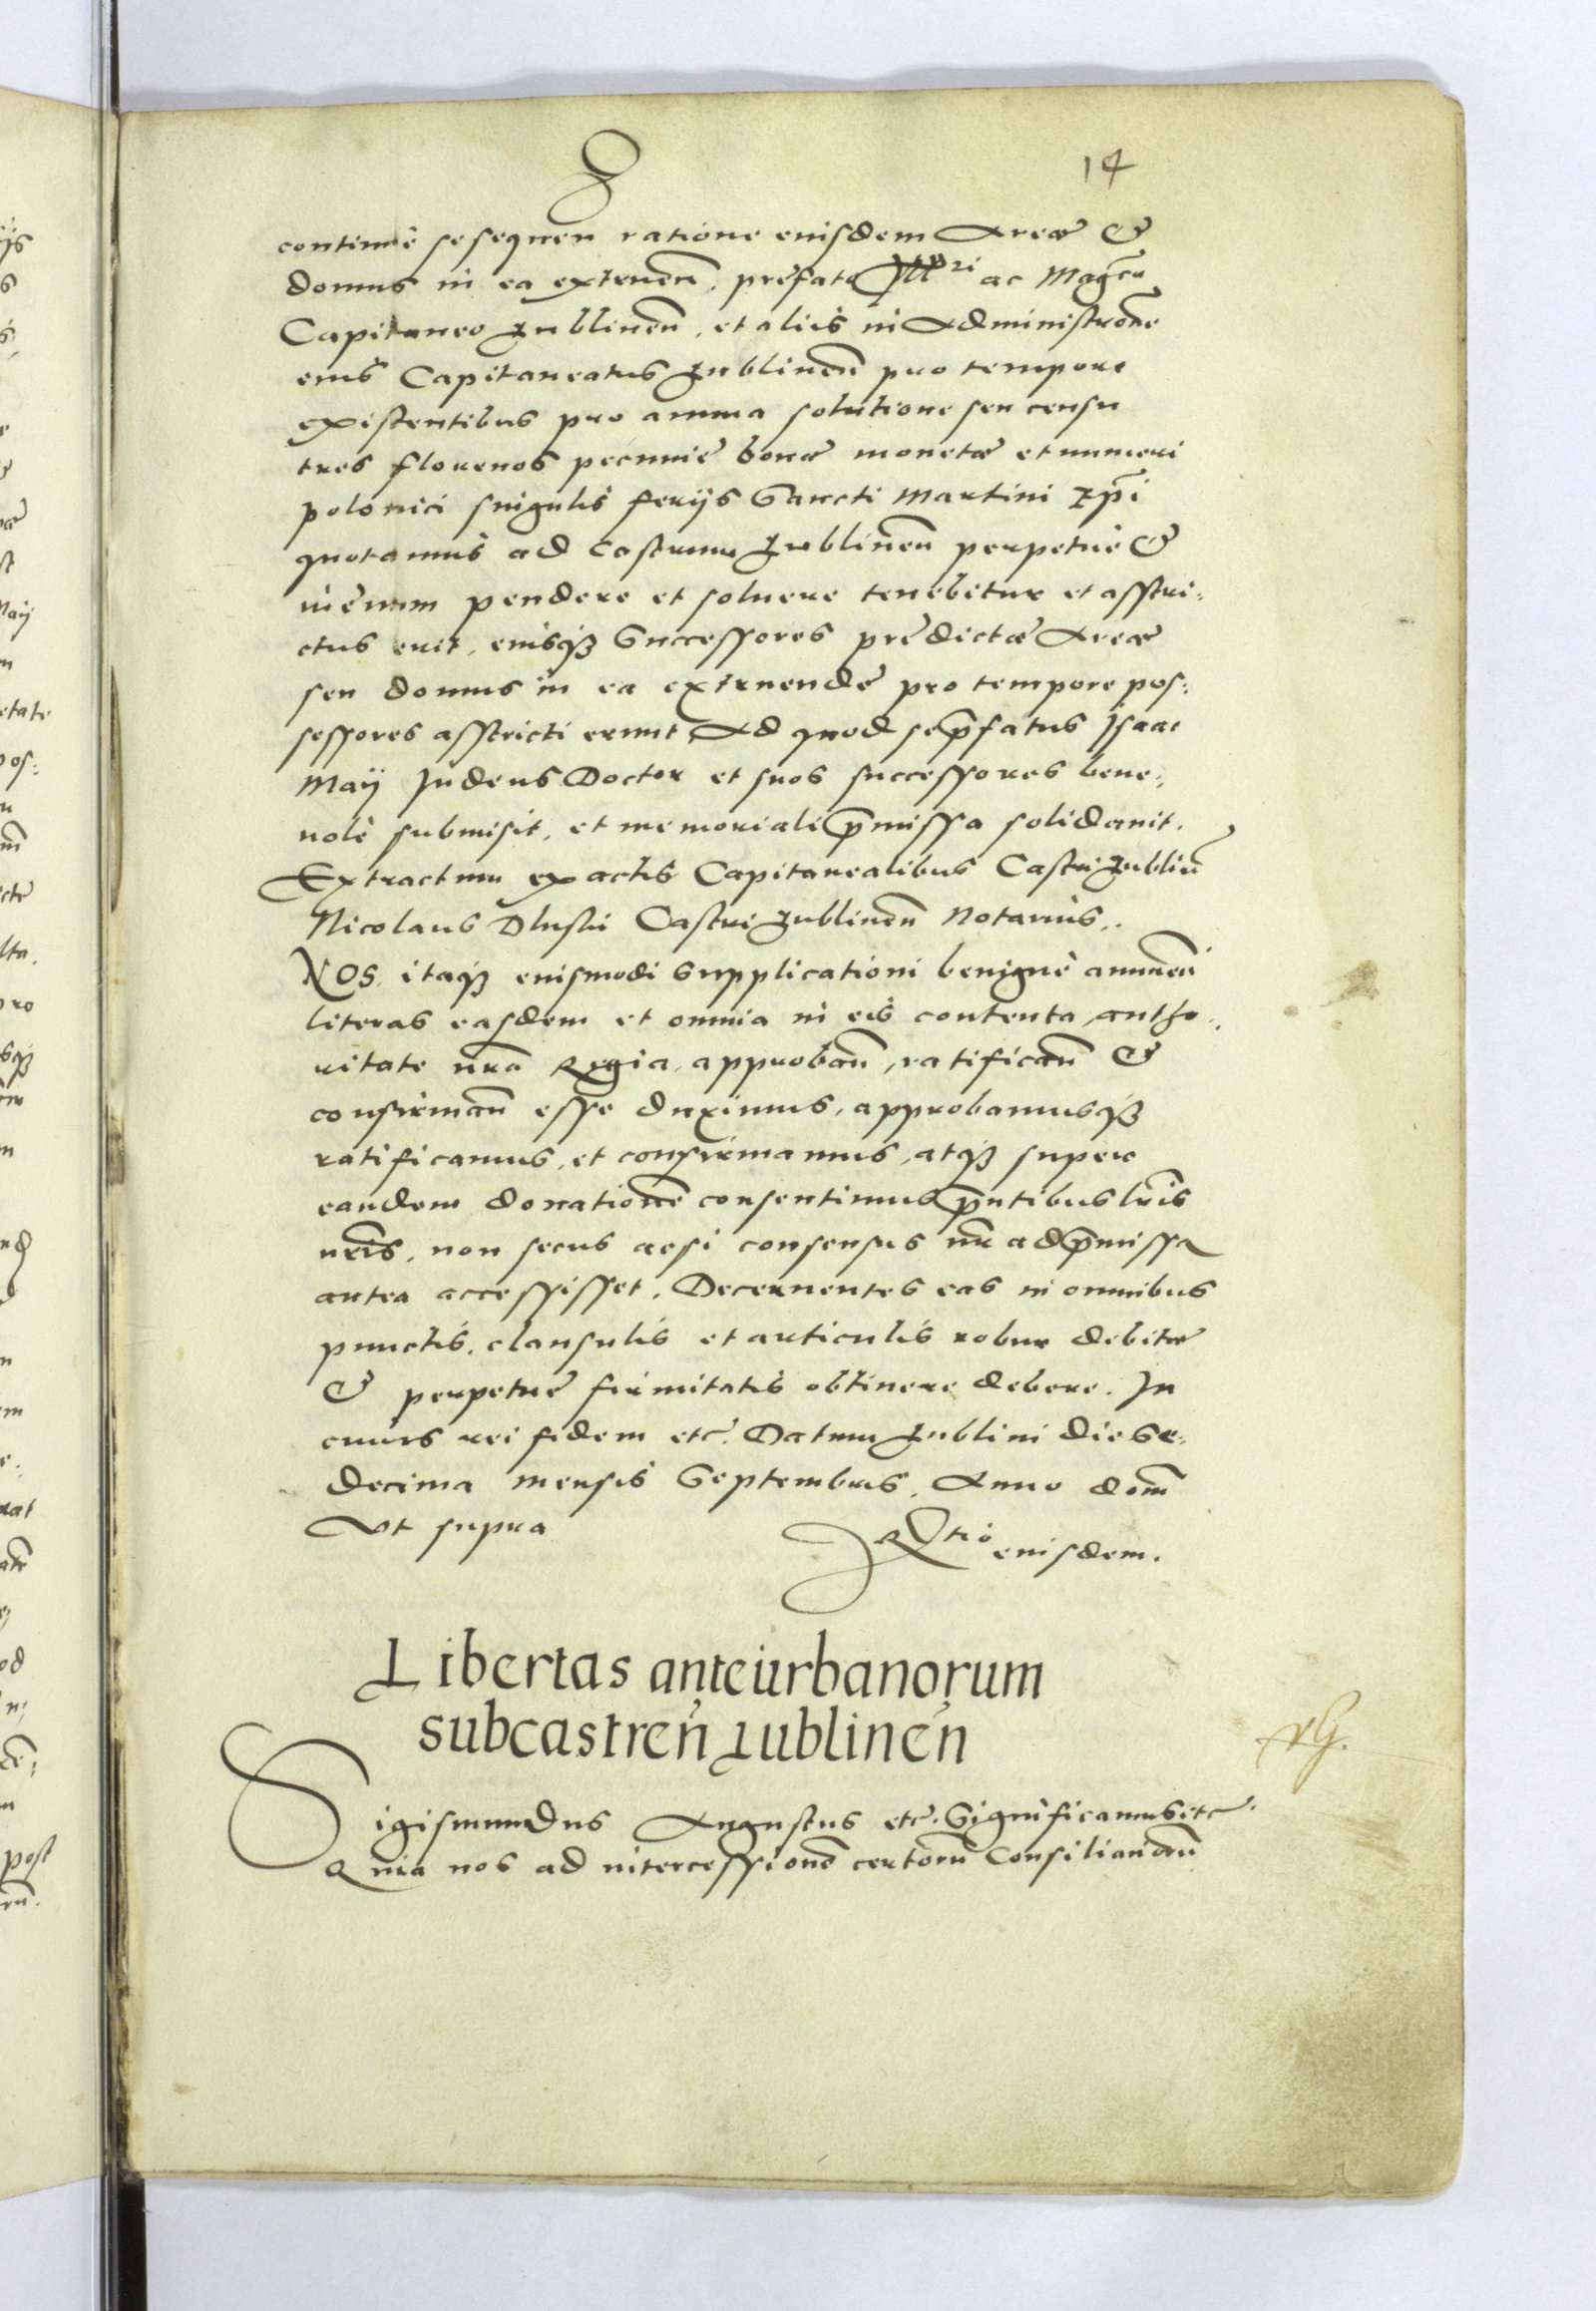 14
continuè sesequen ratione eiusdem Areæ &
domus in ea extruen̄. præfato Illri ac Magco
Capitaneo Lublineñ. et aliis in Administrōne
eius Capitaneatus Lublineñ pro tempore
existentibus pro annua solutione seu censu
tres florenos pecuniæ bonæ monetæ et numeri
polonici singulis ferijs Sancti Martini Xp̄i
quotannis ad Castrum Lublineñ perpetuè &
in ẹuum pendere et soluere tenebitur et asstri:
ctus erit, eiusq3 Successores prędictæ Areæ
seu domus in ea extruendę pro tempore pos:
sessores asstricti erunt, Ad quod sep̄fatus Isaac
Maij Judeus Doctor et suos successores bene:
uolè submisit, et memoriali p̄missa solidauit.
Extractum ex actis Capitanealibus Castri Lubliñ
Nicolaus Dluski Castri Lublineñ Notarius.
NOS. itaq3 eiusmodi supplicationi benignè annueñ
literas easdem et omnia in eis contenta, autho:
ritate nrā Regia, approbañ, ratificañ &
confirmañ esse duximus, approbamusq3
ratificamus, et confirmamus, atq3 super
eandem donationē consentimus p̄ntibus lrīs
nrīs, non secus acsi consensus nr̄ ad p̄missa
antea accessisset, Decernentes eas in omnibus
punctis, clausulis et articulis robur debitæ
& perpetuę firmitatis obtinere debere. In
cuius rei fidem etc. Datum Lublini die Se:
decima mensis Septembris, Anno domī
Vt supra
Rtio eiusdem.
Libertas anteurbanorum
subcastreñ Lublineñ
Sigismundus Augustus etc. Significamus etc.
Quia nos ad intercessionē certorū Consiliariorū